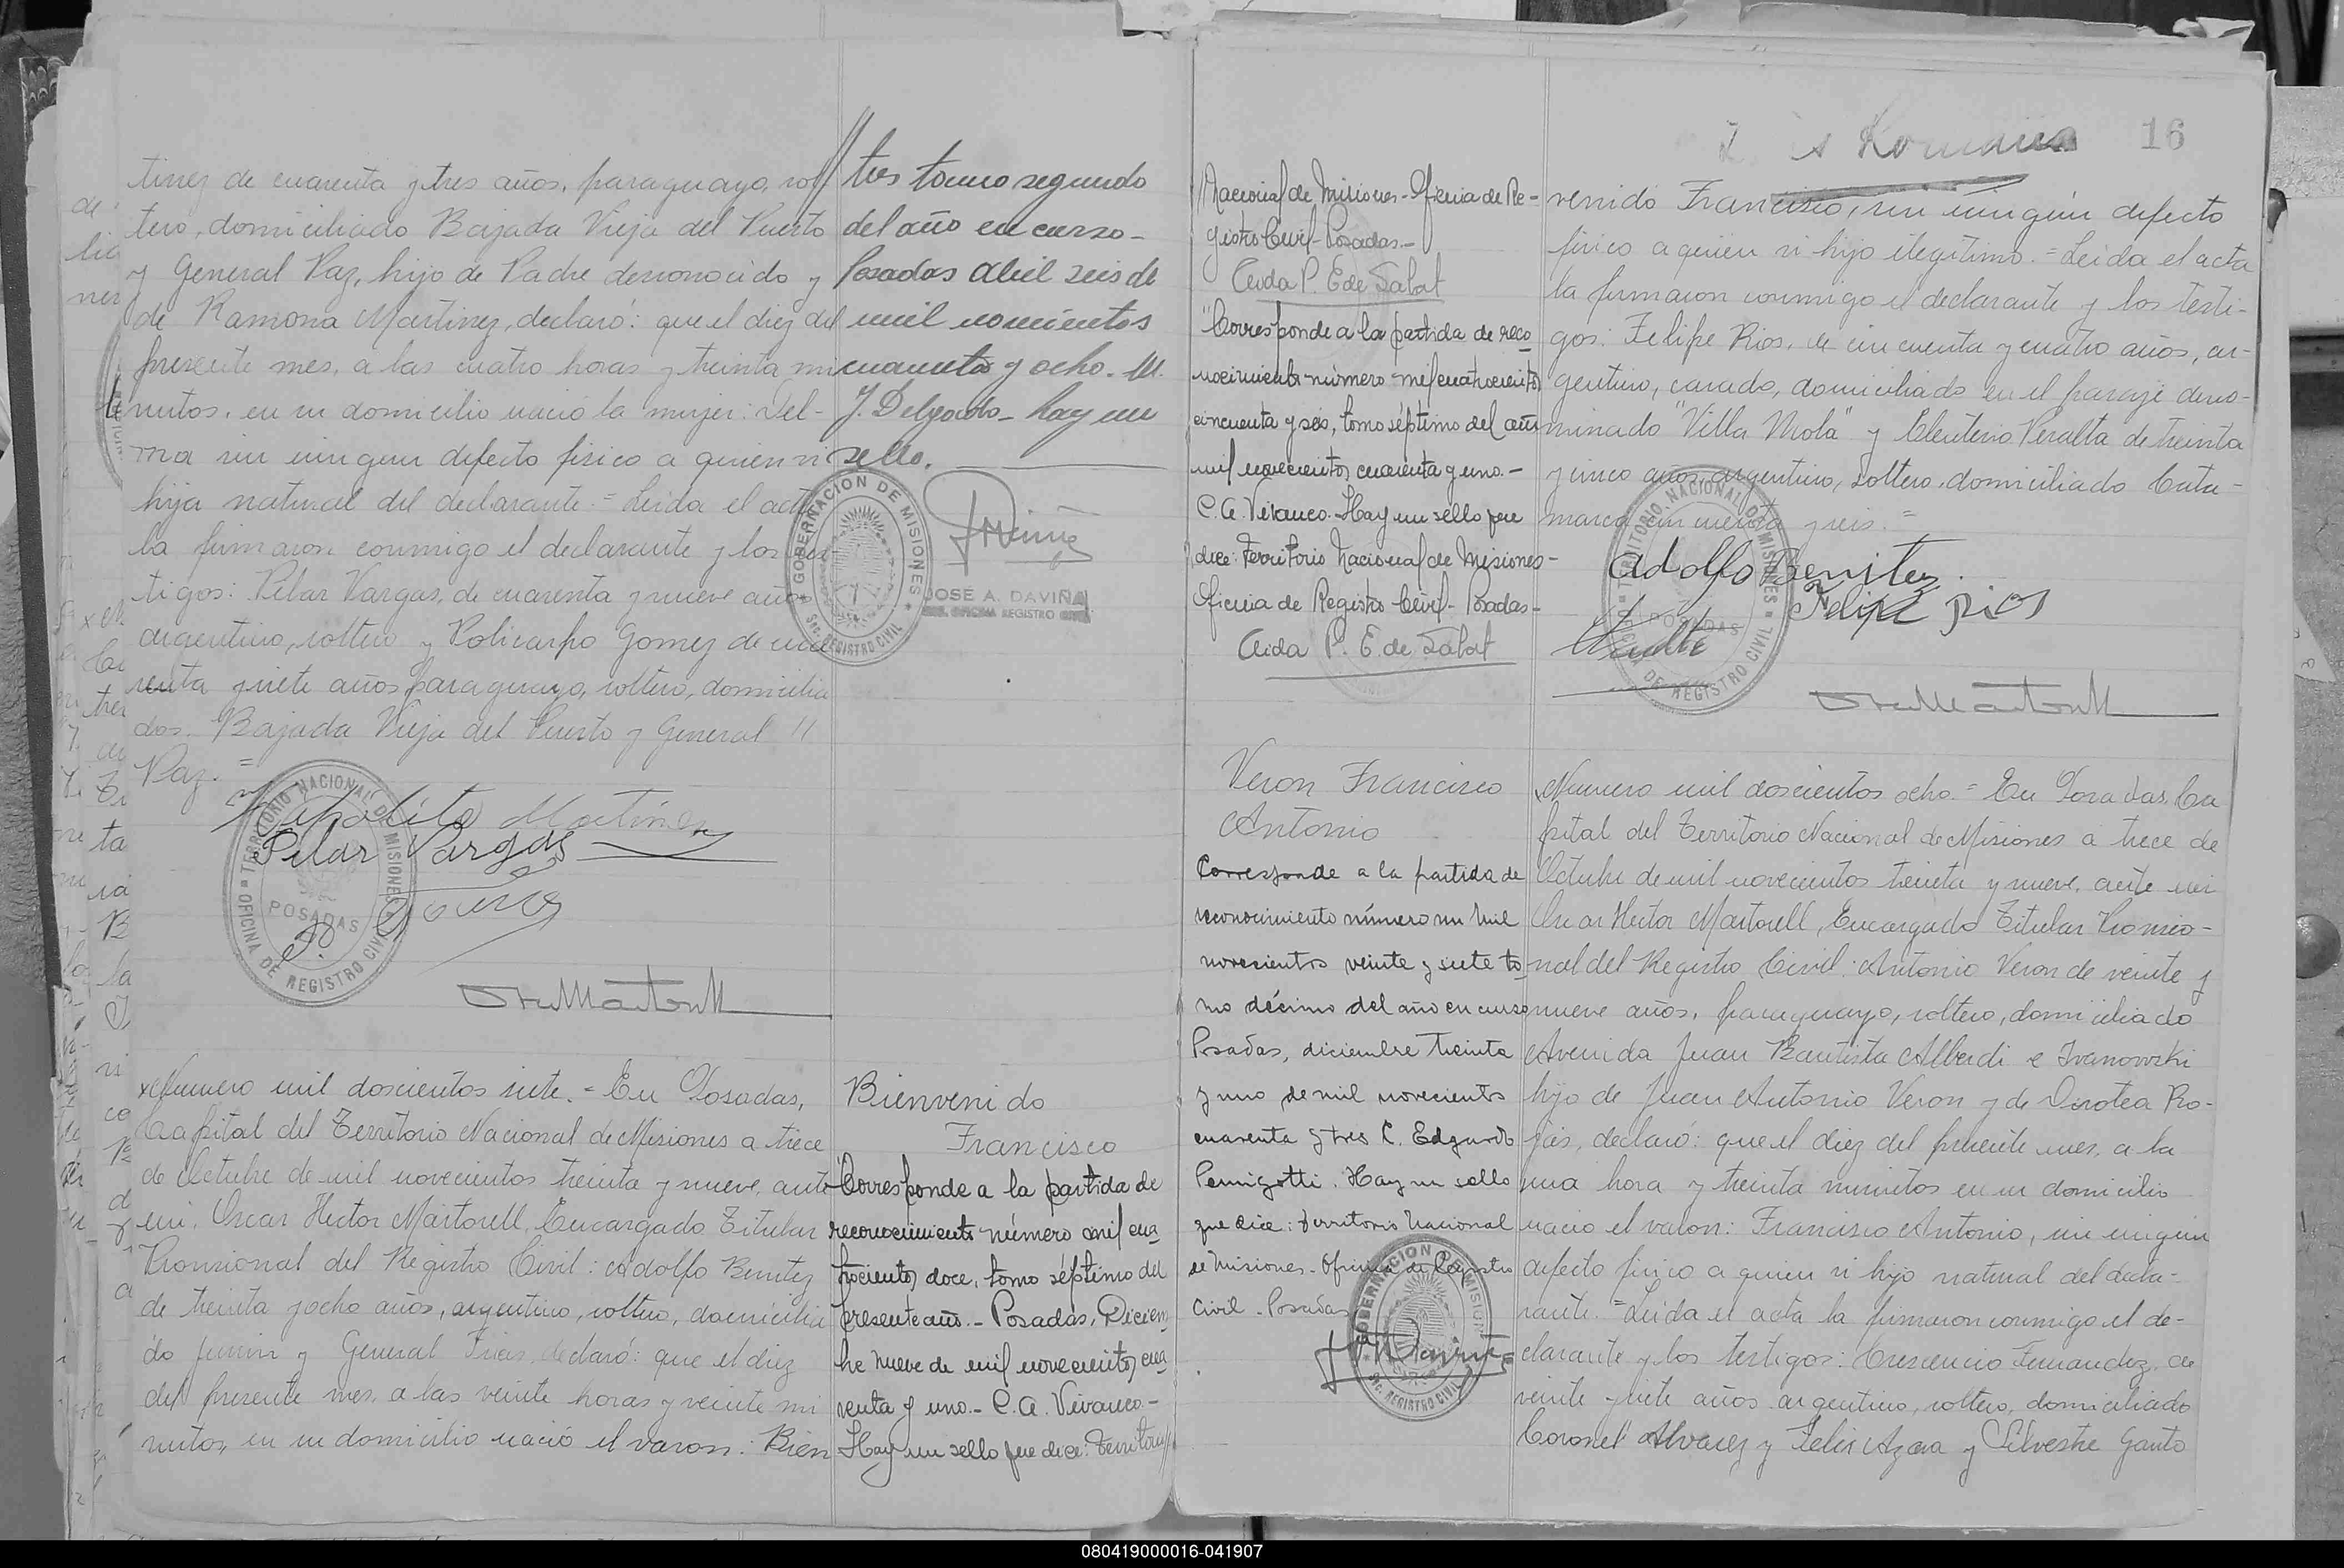 tinez de cuarenta y tres años, paraguayo, sol
tero, domiciliado Bajada Vieja del Puerto
y General Paz, hijo de Padre desconocido y
de Ramona Martinez, declaró: que el diez del
presente mes, a las cuatro horas y treinta mi
nutos, en su domicilio nació la mujer: Del-
ma sin ningun defecto fisico a quien vi
hija natural del declarante. = Leida el acta
la firmaron conmigo el declarante y los tes-
tigos: Pilar Vargas, de cuarenta y nueve años
argentino, soltero y Policarpo Gomez de cua
renta y siete años, paraguayo, soltero, domicilia
dos. Bajada Vieja del Puerto y General //
Paz. =
Martinez
Pilar Vargas
P. Gomez
TERRITORIO NACIONAL DE MISIONES
POSADAS
OFICINA DE REGISTRO CIVIL
// tres tomo segundo
del año en curso-
Posadas abril seis de
mil novecientos
cuarenta y ocho. M.
J. Delgado - hay un
sello.
GOBERNACION DE MISIONES
REGISTRO CIVIL
JOSÉ A. DAVIÑA
OFICINA REGISTRO CIVIL
x Numero mil doscientos siete. = En Posadas,
Capital del Territorio Nacional de Misiones a trece
de Octubre de mil novecientos treinta y nueve, ante
mi, Oscar Hector Martorell, Encargado Titular
Provisional del Registro Civil: Adolfo Benitez
de treinta y ocho años, argentino, soltero, domicilia
do Junin y General Frias, declaró: que el diez
del presente mes, a las veinte horas y veinte mi
nutos, en su domicilio nació el varon: Bien
Bienvenido
Francisco
Corresponde a la partida de
reconocimiento número mil cua
trocientos doce, tomo séptimo del
presente año.- Posadas, Diciem
bre nueve de mil novecientos cua
renta y uno.- C.A. Vivanco.-
Hay un sello que dice: Territorio
16
Nacional de Misiones - Oficina de Re-
gistro Civil - Posadas.-
Aida P. E de Sabat
"Corresponde a la partida de reco
nocimiento número mil cuatrocientos
cincuenta y seis, tomo séptimo del año
mil novecientos cuarenta y uno.-
C.A. Vivanco. Hay un sello que
dice: Territorio Nacional de Misiones-
Oficina de Registro Civil - Posadas-
Aida P. E. de Sabat
venido Francisco, sin ningún defecto
fisico a quien vi hijo ilegitimo. = Leida el acta
la firmaron conmigo el declarante y los testi-
gos: Felipe Rios, de cincuenta y cuatro años, ar-
gentino, casado, domiciliado en el paraje deno-
minado "Villa Mola" y Eleuterio Peralta de treinta
y cinco años, argentino, soltero, domiciliado Cata-
marca cincuenta y seis. =
Adolfo Benitez.
Felipe Rios
TERRITORIO NACIONAL DE MISIONES
POSADAS
OFICINA DE REGISTRO CIVIL
Veron Francisco
Antonio
Corresponde a la partida de
reconocimiento número un mil
novecientos veinte y siete to
mo décimo del año en curso
Posadas, diciembre treinta
y uno de mil novecientos
cuarenta y tres C. Edgardo
Pennigotti. Hay un sello
que dice: Territorio Nacional
de Misiones. Oficina de Registro
Civil - Posadas
GOBERNACION DE MISIONES
REGISTRO CIVIL
Numero mil doscientos ocho. = En Posadas, Ca
pital del Territorio Nacional de Misiones a trece de
Octubre de mil novecientos treinta y nueve, ante mi
Oscar Hector Martorell, Encargado Titular Provisio-
nal del Registro Civil: Antonio Veron de veinte y
nueve años, paraguayo, soltero, domiciliado
Avenida Juan Bautista Alberdi e Ivanowski
hijo de Juan Antonio Veron y de Dorotea Ro-
jas, declaró: que el diez del presente mes, a la
una hora y treinta minutos en su domicilio
nacio el varon: Francisco Antonio, sin ningun
defecto fisico a quien vi hijo natural del decla-
rante. = Leida el acta la firmaron conmigo el de-
clarante y los testigos: Crescencio Fernandez, de
veinte y siete años argentino, soltero, domiciliado
Coronel Alvarez y Felix Azara y Silvestre Gauto
080419000016-041907